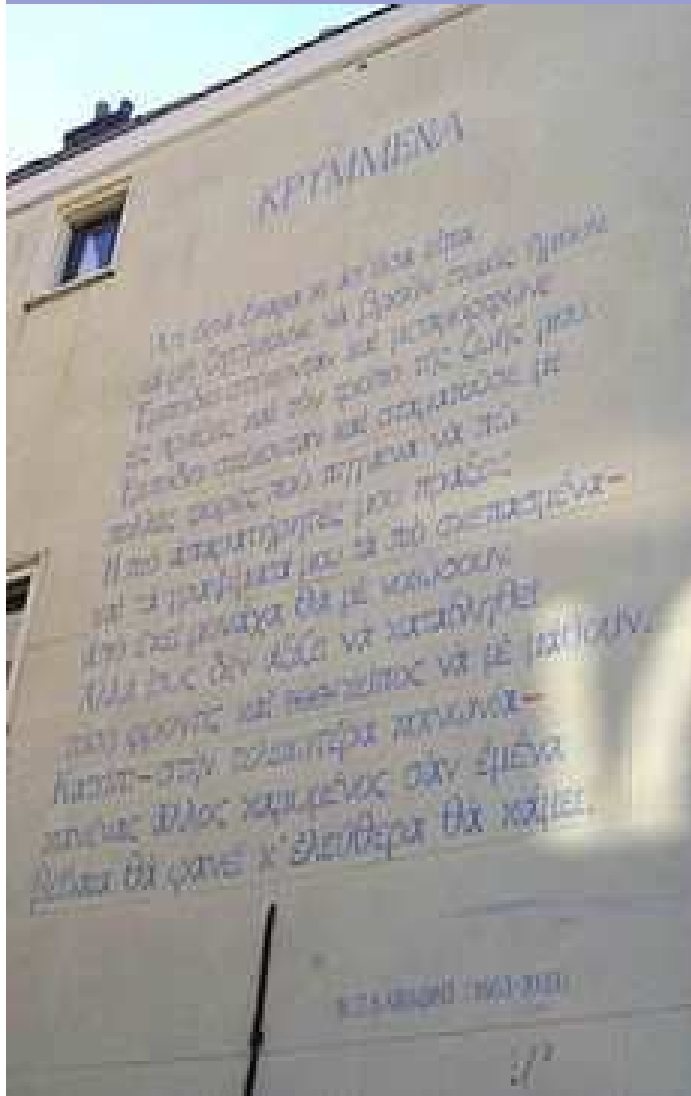 ΚΡΥΜΜΕΝΑ
Ἀπ' ὅσα ἔκαμα κι ἀπ' ὅσα εἶπα
νὰ μὴ ζητήσουνε νὰ βροῦν ποιὸς ἤμουν
Ἐμπόδιο στέκονταν καὶ μεταμόρφωνε
τὲς πράξεις καὶ τὸν τρόπο τῆς ζωῆς μου.
Ἐμπόδιο στέκονταν καὶ σταματοῦσε με
πολλὲς φορὲς ποὺ πήγαινα νὰ πῶ
Ἡ πιὸ ἀπαρατήρητές μου πράξεις
καὶ τὰ γραψίματά μου τὰ πιὸ σκεπασμένα–
ἀπὸ ἐκεῖ μονάχα θὰ μὲ νοιώσουν.
Ἀλλὰ ἴσως δὲν ἀξίζει νὰ καταβληθεῖ
φροντὶς καὶ κόπος νὰ μὲ μάθουν.
Κατόπι–στὴν τελειοτέρα κοινωνία–
κανένας ἄλλος καμωμένος σὰν ἐμένα
βέβαια θὰ φανεῖ κ' ἐλεύθερα θὰ κάμει.